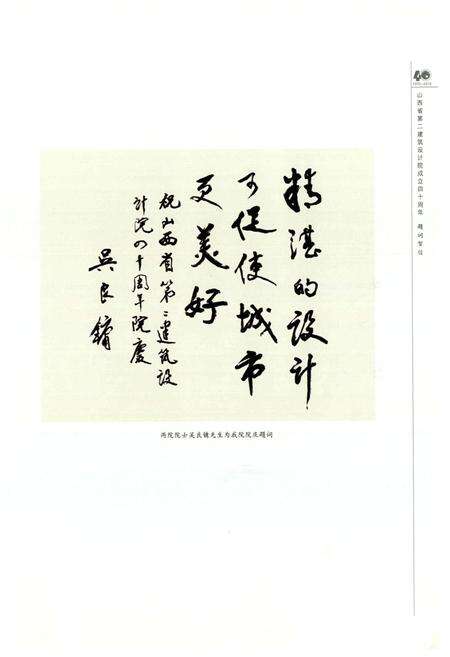 精湛的设计
可促使城市
更美好
祝山西省第二建筑设
计院四十周年院庆
吴良镛
两院院士吴良镛先生为我院院庆题词
40
山西省第二建筑设计院成立四十周年 题词贺信